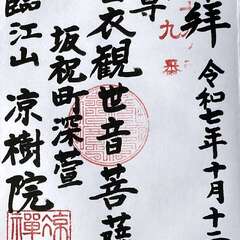 拝
令和七年十月十二
九番
尊
衣観世音菩薩
坂祝町深萱
臨江山 凉樹院